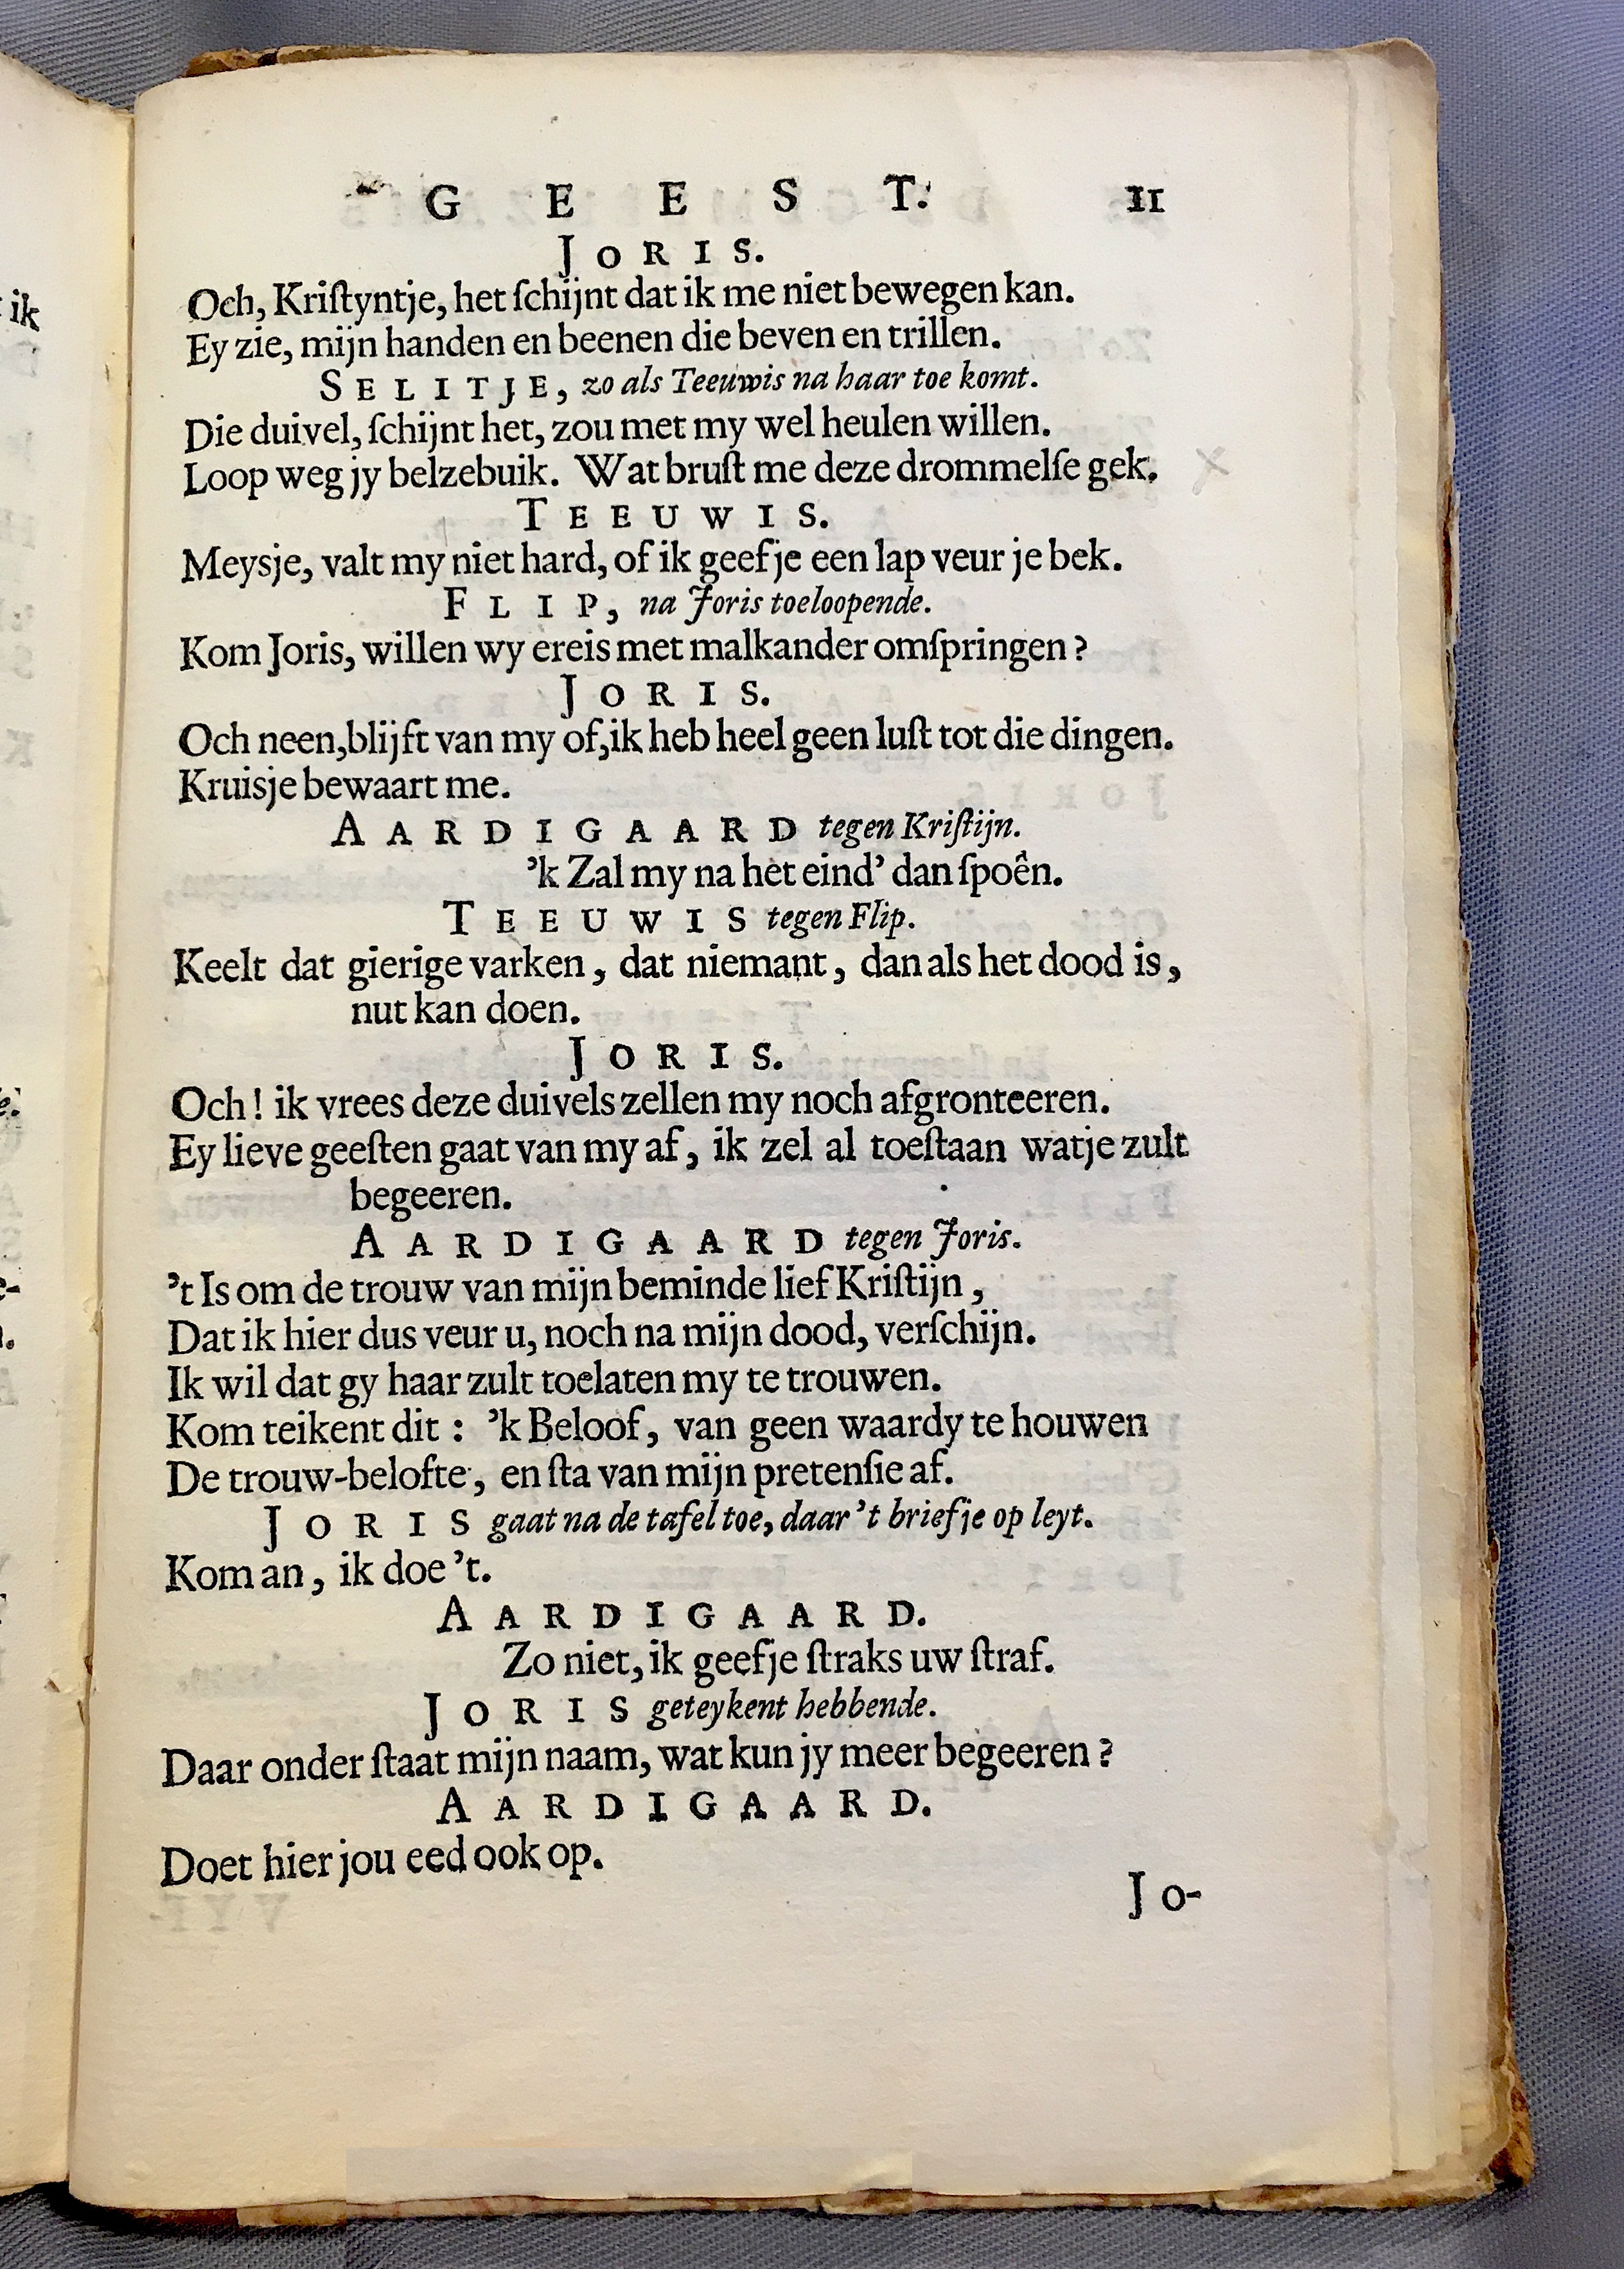 G E E S T. 11
JORIS.
Och, Kriſtyntje, het ſchijnt dat ik me niet bewegen kan.
Ey zie, mijn handen en beenen die beven en trillen.
SELITJE, zo als Teeuwis na haar toe komt.
Die duivel, ſchijnt het, zou met my wel heulen willen.
Loop weg jy belzebuik. Wat bruſt me deze drommelſe gek.
TEEUWIS.
Meysje, valt my niet hard, of ik geefje een lap veur je bek.
FLIP, na Joris toeloopende.
Kom Joris, willen wy ereis met malkander omſpringen?
JORIS.
Och neen, blijft van my of, ik heb heel geen luſt tot die dingen.
Kruisje bewaart me.
AARDIGAARD tegen Kriſtijn.
’k Zal my na het eind’ dan ſpoên.
TEEUWIS tegen Flip.
Keelt dat gierige varken, dat niemant, dan als het dood is,
nut kan doen.
JORIS.
Och! ik vrees deze duivels zellen my noch afgronteeren.
Ey lieve geeſten gaat van my af, ik zel al toeſtaan watje zult
begeeren.
AARDIGAARD tegen Joris.
’t Is om de trouw van mijn beminde lief Kriſtijn,
Dat ik hier dus veur u, noch na mijn dood, verſchijn.
Ik wil dat gy haar zult toelaten my te trouwen.
Kom teikent dit: ’k Beloof, van geen waardy te houwen
De trouw-belofte, en ſta van mijn pretenſie af.
JORIS gaat na de tafel toe, daar ’t briefje op leyt.
Kom an, ik doe ’t.
AARDIGAARD.
Zo niet, ik geefje ſtraks uw ſtraf.
JORIS geteykent hebbende.
Daar onder ſtaat mijn naam, wat kun jy meer begeeren?
AARDIGAARD.
Doet hier jou eed ook op.
Jo-